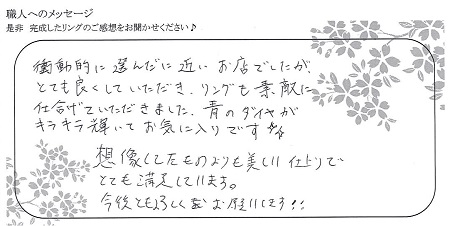 職人へのメッセージ
是非 完成したリングのご感想をお聞かせください♪
衝動的に選んだに近いお店でしたが、
とても良くしていただき、リングも素敵に
仕上げていただきました、青のダイヤが
キラキラ輝いてお気に入りです
想像してたものよりも美しい仕上りで
とても満足しています。
今後ともよろしくお願いします!!